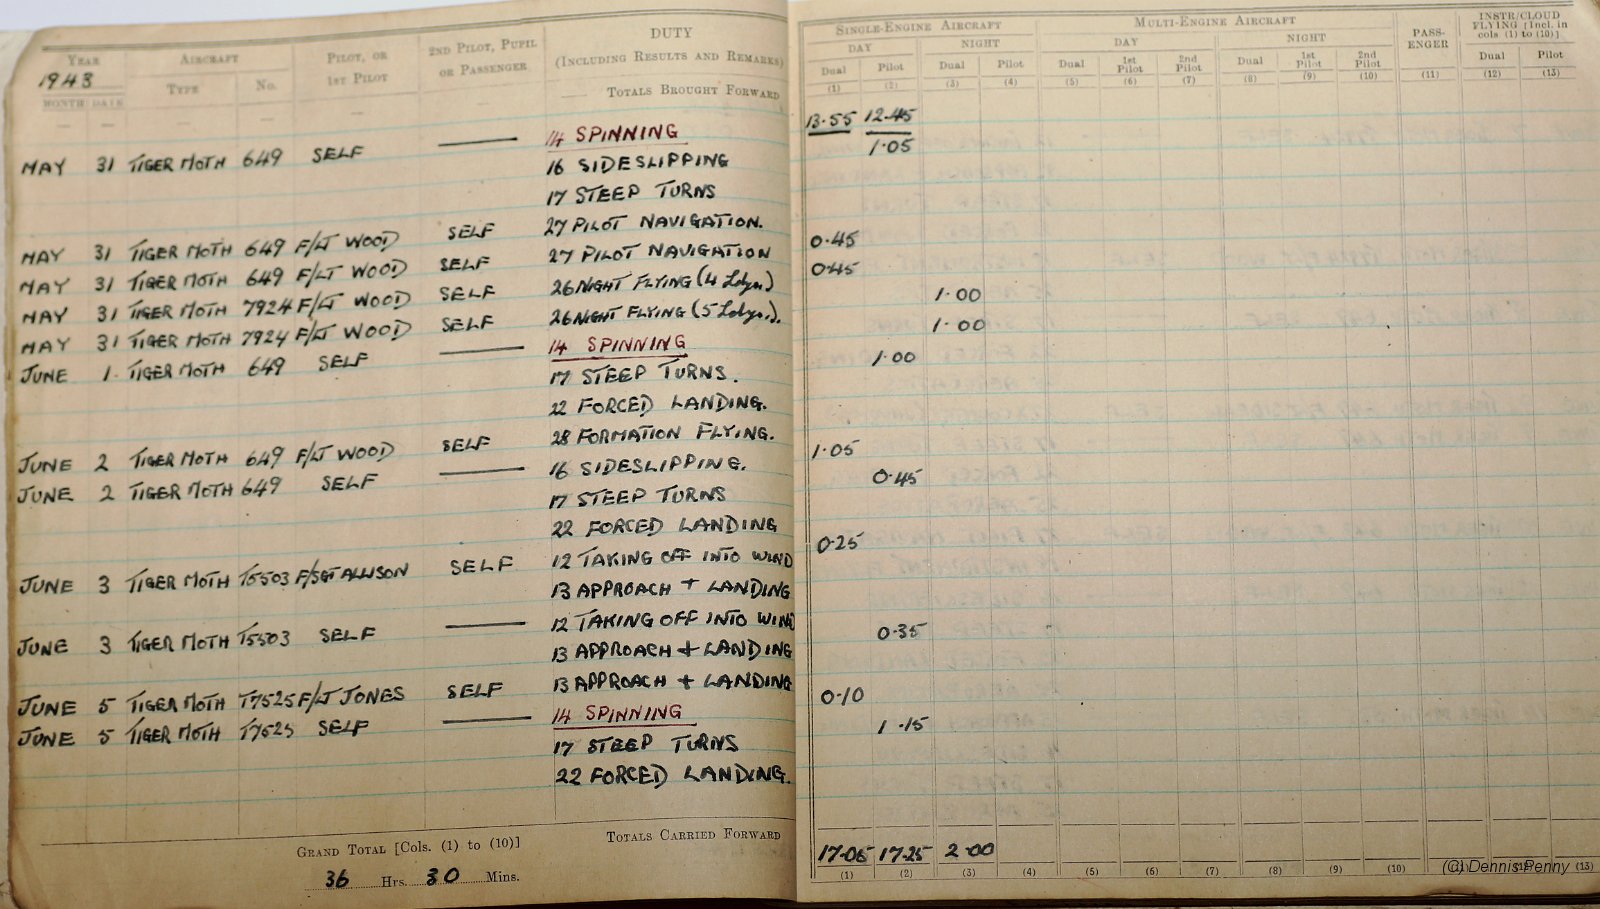 YEAR AIRCRAFT PILOT, OR 1ST PILOT 2ND PILOT, PUPIL OR PASSENGER DUTY (INCLUDING RESULTS AND REMARKS) SINGLE-ENGINE AIRCRAFT MULTI-ENGINE AIRCRAFT PASS-ENGER INSTR/CLOUD FLYING [Incl. in cols (1) to (10)]
1943 TYPE No. DAY NIGHT DAY NIGHT
MONTH DATE Dual Pilot Dual Pilot Dual 1st Pilot 2nd Pilot Dual 1st Pilot 2nd Pilot Dual Pilot
(1) (2) (3) (4) (5) (6) (7) (8) (9) (10) (11) (12) (13)
— — — — — — TOTALS BROUGHT FORWARD 13.55 12.45
MAY 31 TIGER MOTH 649 SELF —— 14 SPINNING 1.05
16 SIDESLIPPING
17 STEEP TURNS
MAY 31 TIGER MOTH 649 F/LT WOOD SELF 27 PILOT NAVIGATION. 0.45
MAY 31 TIGER MOTH 649 F/LT WOOD SELF 27 PILOT NAVIGATION 0.45
MAY 31 TIGER MOTH 7924 F/LT WOOD SELF 26 NIGHT FLYING (4 Ldgs.) 1.00
MAY 31 TIGER MOTH 7924 F/LT WOOD SELF 26 NIGHT FLYING (5 Ldgs.). 1.00
JUNE 1. TIGER MOTH 649 SELF —— 14 SPINNING 1.00
17 STEEP TURNS.
22 FORCED LANDING.
JUNE 2 TIGER MOTH 649 F/LT WOOD SELF 28 FORMATION FLYING. 1.05
JUNE 2 TIGER MOTH 649 SELF —— 16 SIDESLIPPING. 0.45
17 STEEP TURNS
22 FORCED LANDING
JUNE 3 TIGER MOTH T5503 F/SGT ALLISON SELF 12 TAKING OFF INTO WIND 0.25
13 APPROACH + LANDING
JUNE 3 TIGER MOTH T5503 SELF —— 12 TAKING OFF INTO WIND 0.35
13 APPROACH + LANDING
JUNE 5 TIGER MOTH T7525 F/LT JONES SELF 13 APPROACH + LANDING 0.10
JUNE 5 TIGER MOTH T7525 SELF —— 14 SPINNING 1.15
17 STEEP TURNS
22 FORCED LANDING.
GRAND TOTAL [Cols. (1) to (10)] TOTALS CARRIED FORWARD 17.05 17.25 2.00
36 Hrs. 30 Mins. (1) (2) (3) (4) (5) (6) (7) (8) (9) (10) (12) (13)
(C) Dennis Penny